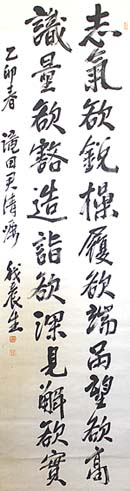 志氣欲鋭操履欲端局望欲高
識量欲豁造詣欲深見解欲實
乙卯春 滝田君清囑 我長生